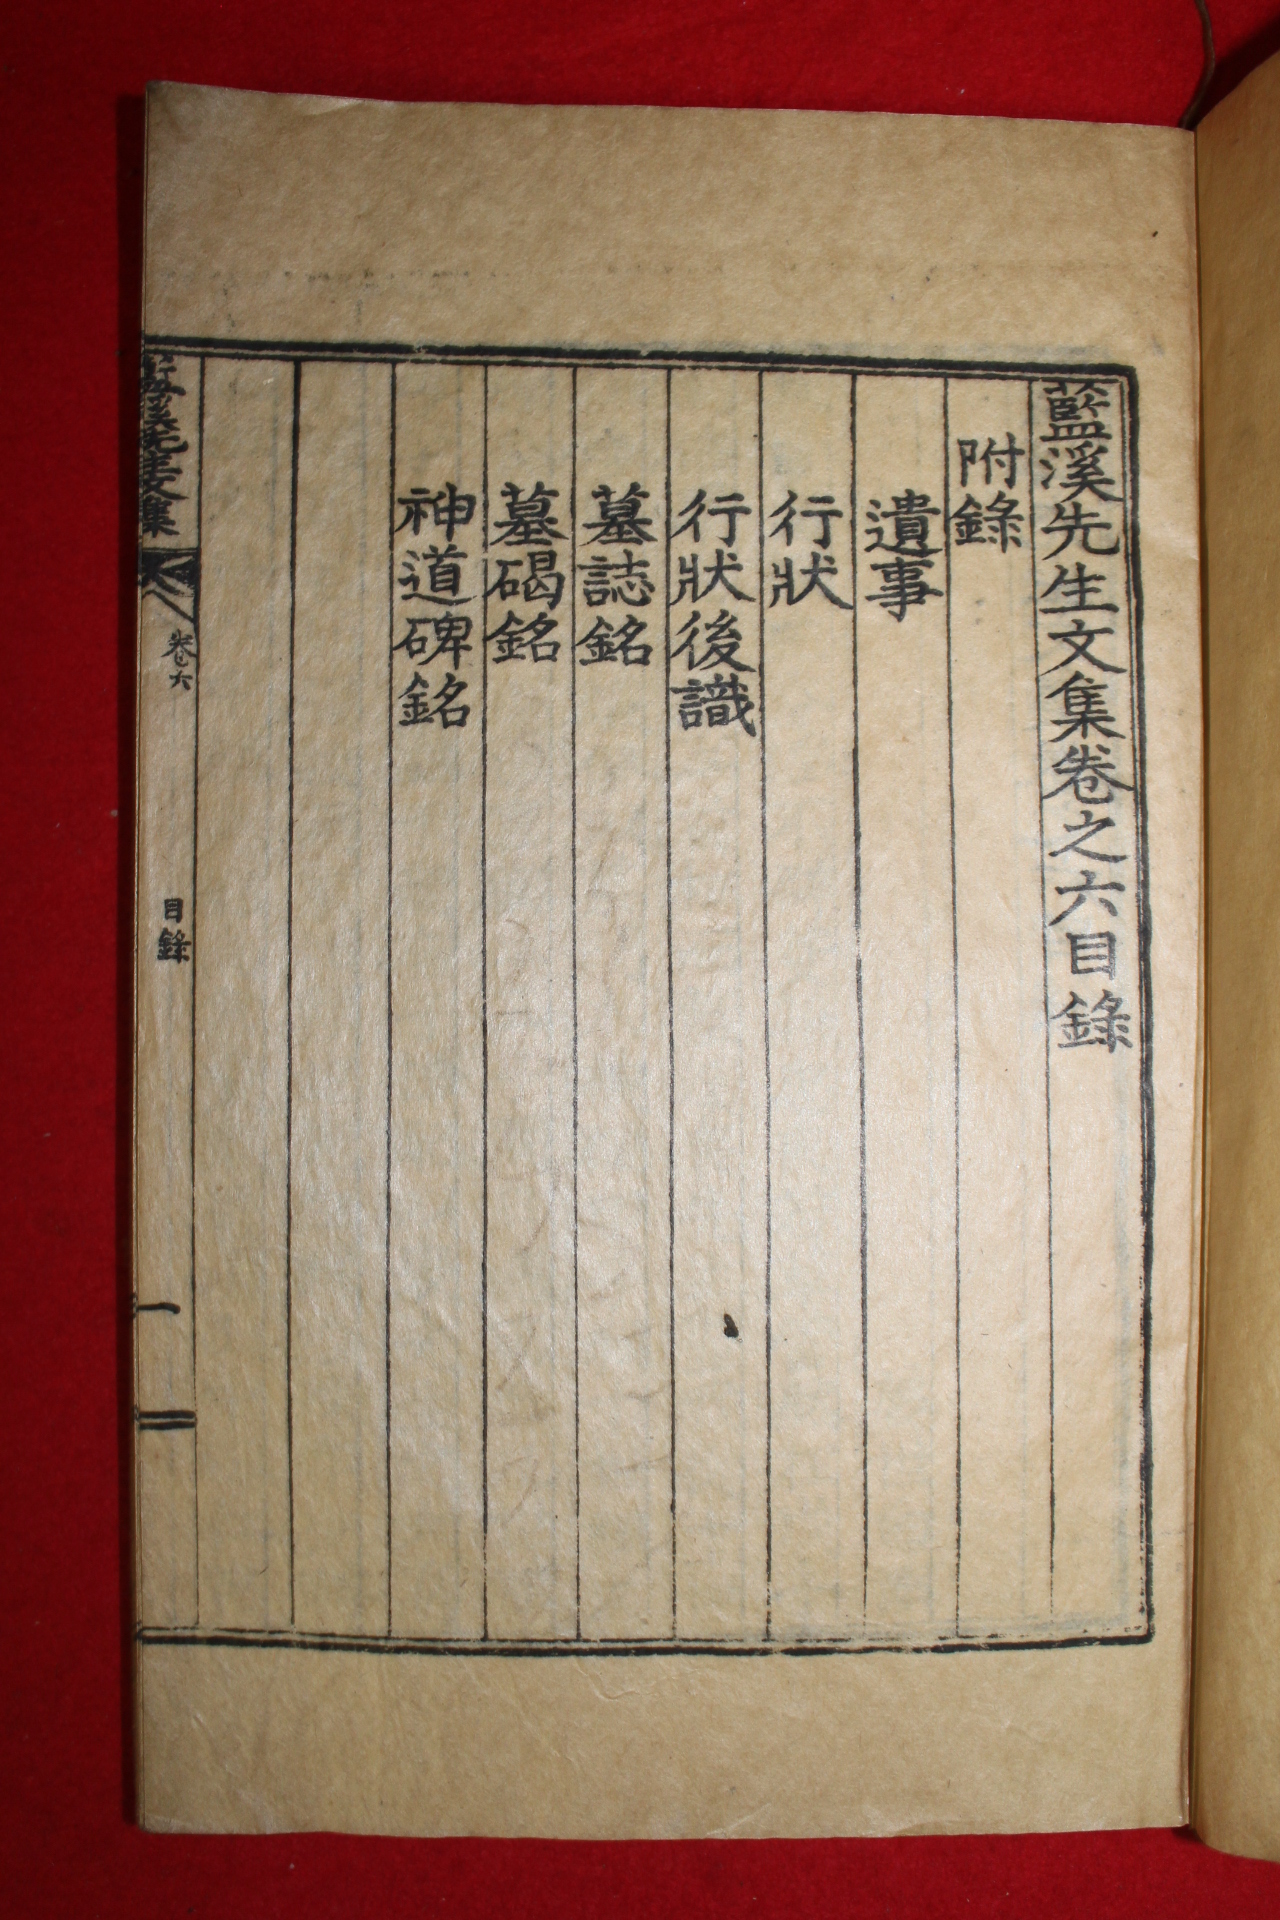 藍溪先生文集卷之六目錄
附錄
遺事
行狀
行狀後識
墓誌銘
墓碣銘
神道碑銘
藍溪先生文集
卷六
目錄
一